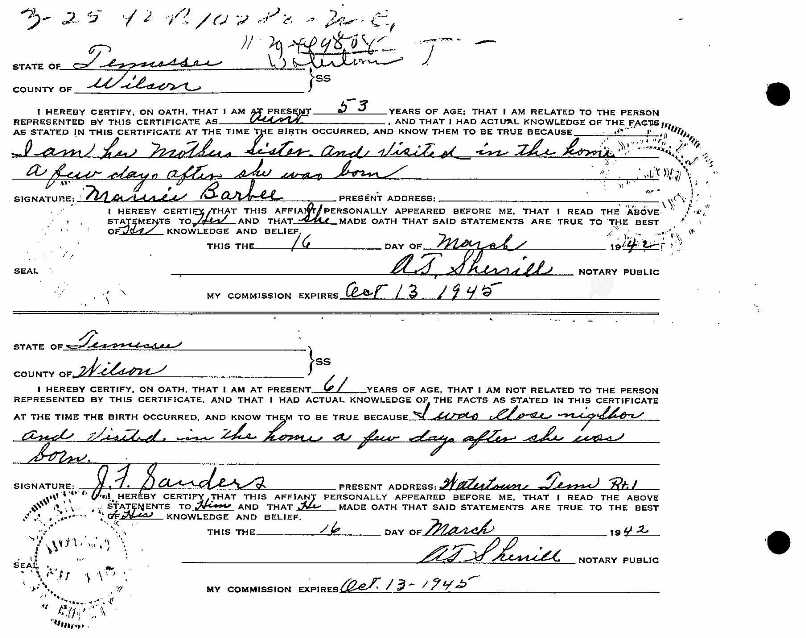 3-25 42
STATE OF Tennessee Watertown T
COUNTY OF Wilson } SS
I HEREBY CERTIFY, ON OATH, THAT I AM AT PRESENT 53 YEARS OF AGE; THAT I AM RELATED TO THE PERSON
REPRESENTED BY THIS CERTIFICATE AS Aunt, AND THAT I HAD ACTUAL KNOWLEDGE OF THE FACTS
AS STATED IN THIS CERTIFICATE AT THE TIME THE BIRTH OCCURRED, AND KNOW THEM TO BE TRUE BECAUSE
I am her Mothers Sister and visited in the home
a few days after she was born
SIGNATURE: Mannie Barbee PRESENT ADDRESS:
I HEREBY CERTIFY THAT THIS AFFIANT PERSONALLY APPEARED BEFORE ME, THAT I READ THE ABOVE
STATEMENTS TO Her AND THAT She MADE OATH THAT SAID STATEMENTS ARE TRUE TO THE BEST
OF Her KNOWLEDGE AND BELIEF.
THIS THE 16 DAY OF March 1942
SEAL A T Sherrill NOTARY PUBLIC
MY COMMISSION EXPIRES Oct 13 1945
STATE OF Tennessee
COUNTY OF Wilson } SS
I HEREBY CERTIFY, ON OATH, THAT I AM AT PRESENT 61 YEARS OF AGE, THAT I AM NOT RELATED TO THE PERSON
REPRESENTED BY THIS CERTIFICATE, AND THAT I HAD ACTUAL KNOWLEDGE OF THE FACTS AS STATED IN THIS CERTIFICATE
AT THE TIME THE BIRTH OCCURRED, AND KNOW THEM TO BE TRUE BECAUSE I was close nighbor
and visited in the home a few days after she was
born.
SIGNATURE: J. F. Sanders PRESENT ADDRESS: Watertown Tenn Rt. 1
I HEREBY CERTIFY THAT THIS AFFIANT PERSONALLY APPEARED BEFORE ME, THAT I READ THE ABOVE
STATEMENTS TO Him AND THAT He MADE OATH THAT SAID STATEMENTS ARE TRUE TO THE BEST
OF His KNOWLEDGE AND BELIEF.
THIS THE 16 DAY OF March 1942
SEAL A T Sherrill NOTARY PUBLIC
MY COMMISSION EXPIRES Oct. 13-1945